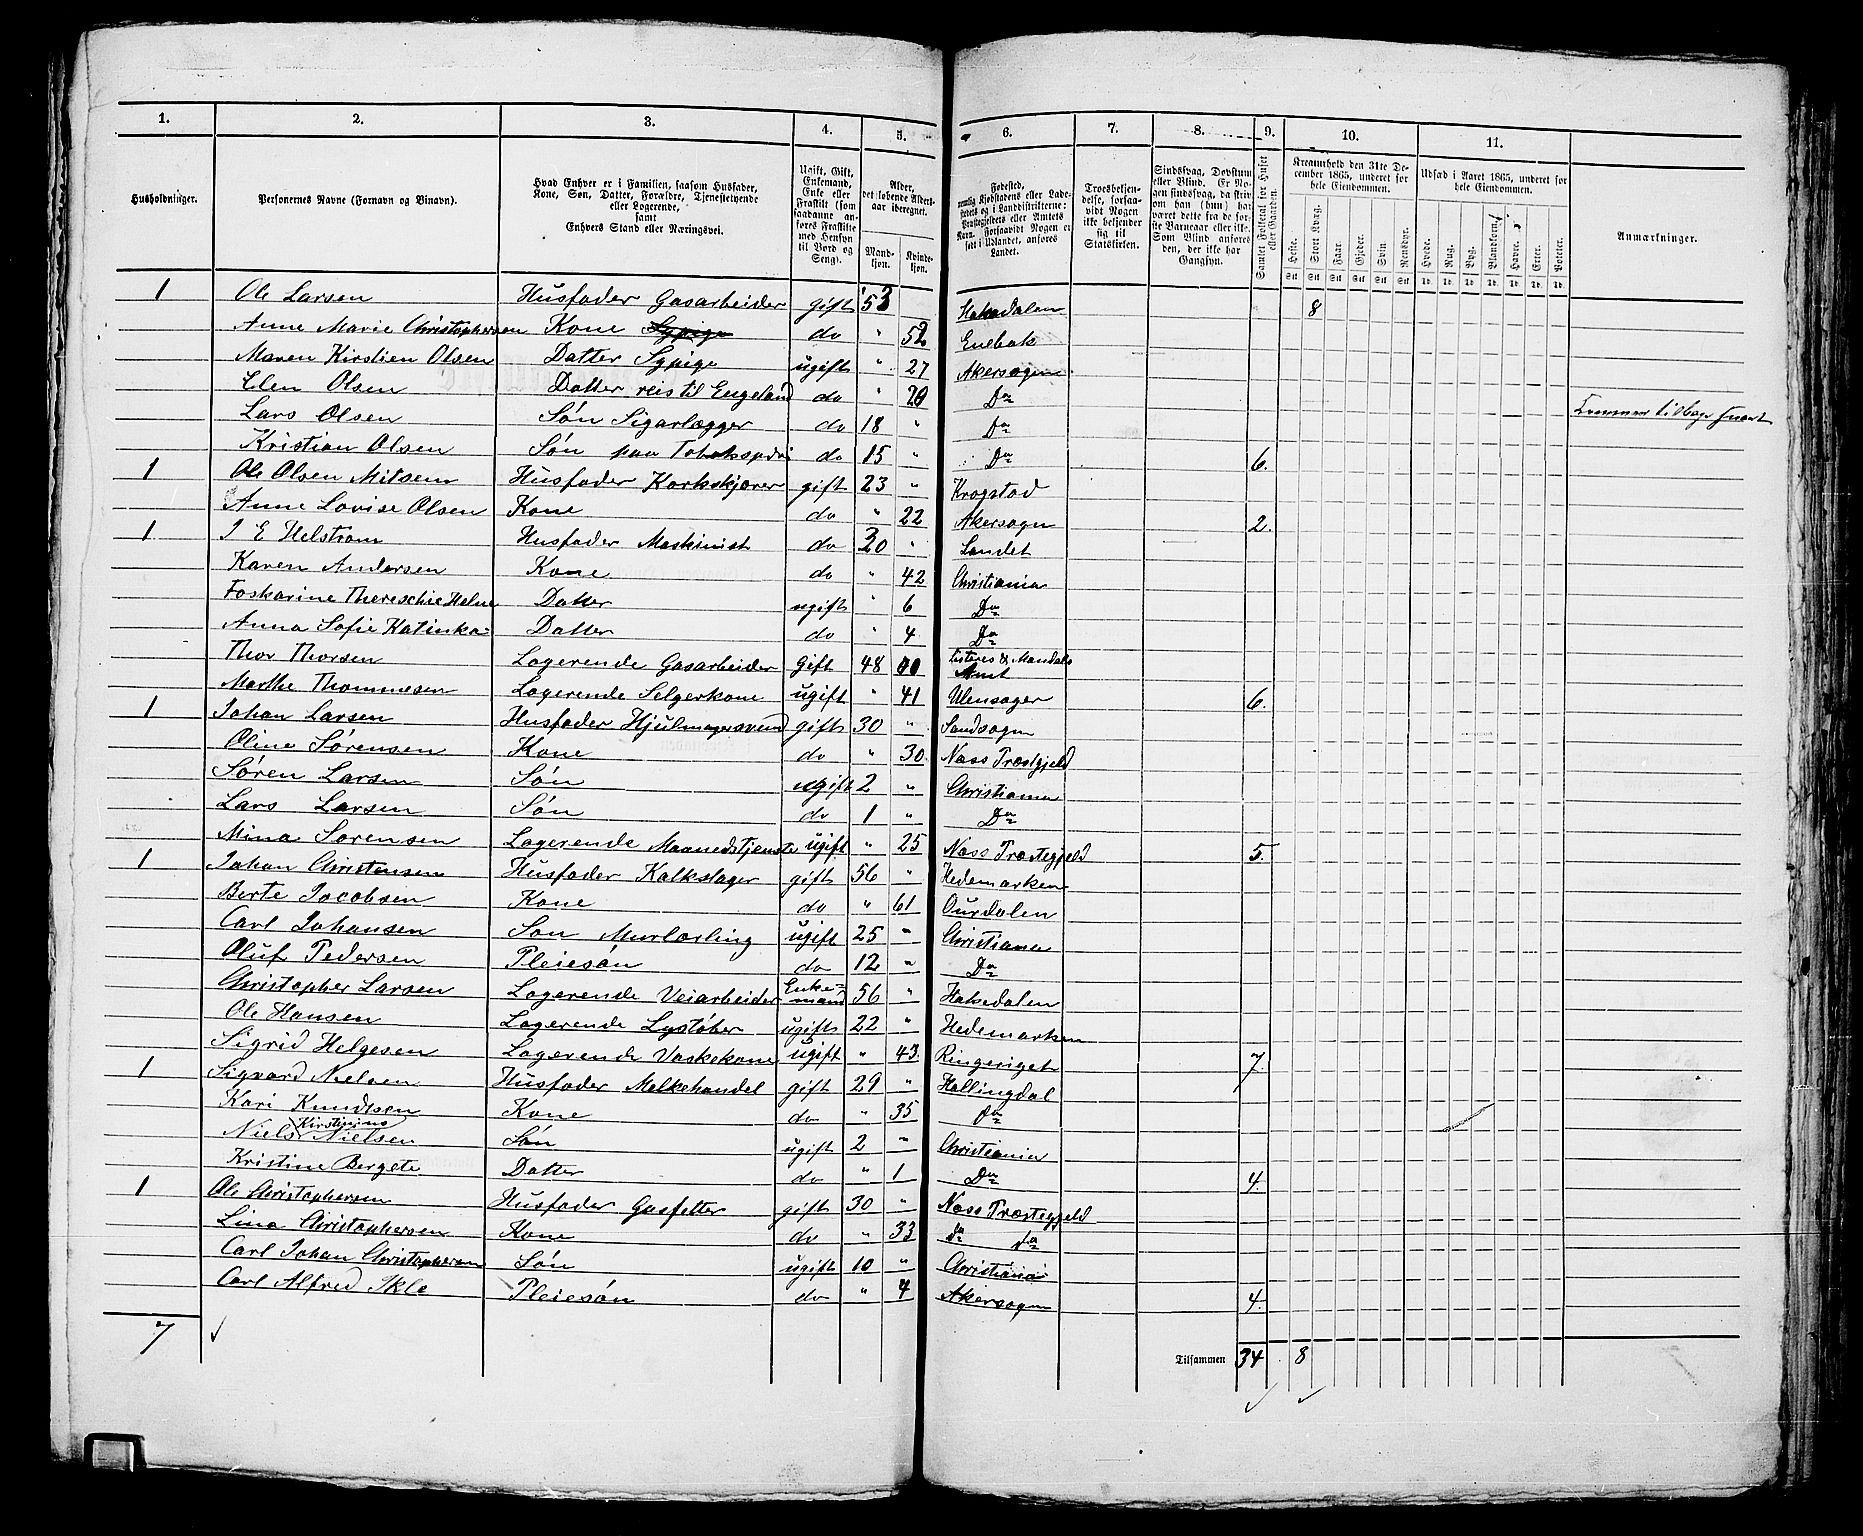 1. 2. 3. 4. 5. 6. 7. 8. 9. 10. 11.
Husholdninger. Personernes Navne (Fornavn og Binavn). Hvad Enhver er i Familien, saasom Husfader, Kone, Søn, Datter, Forældre, Tjenestetyende eller Logerende, samt Enhvers Stand eller Næringsvei. Ugift, Gift, Enkemand, Enke eller Fraskilt (som saadanne anføres Fraskilte med Hensyn til Bord og Seng). Alder, det løbende Aldersaar iberegnet. Mandkjøn. Kvindekjøn. Fødested, Troesbekjendelse, forsaavidt Nogen ikke bekjender sig til Statskirken. Sindssvag, Døvstum eller Blind. Er Nogen sindssvag, da skrives om han (hun) har været dette fra de første Barneaar eller ikke. Som Blind anføres den, der ikke har Gangsyn. Samlet Folketal for Huset eller Gaarden. Kreaturhold den 31te December 1865, underet for hele Eiendommen. Udsæd i Aaret 1865, underet for hele Eiendommen. Anmærkninger.
Heste. Stort Kvæg. Faar. Gjeder. Svin. Rensdyr. Hvede. Rug. Byg. Blandkorn. Havre. Erter. Poteter.
1 Ole Larsen Husfader Gasarbeider gift 53 Hakedalen 8
Anne Marie Christophersen Kone Sypige do " 52 Enebak
Maren Kirstien Olsen Datter Sypige ugift " 27 Akersogn
Elen Olsen Datter reis til Engeland do " 20 Do Kommer tilbage snart
Lars Olsen Søn Sigarlægger do 18 " Do
Kristian Olsen Søn paa do 15 " Do 6.
1 Ole Olsen Mitsem Husfader Korkskjærer gift 23 " Krogstad
Anne Lovise Olsen Kone do " 22 Akersogn 2.
1 J E Helstrom Husfader Maskinist do 30 " Landet
Karen Andersen Kone do " 42 Christiania
Foskarine Thereschie Helene Datter ugift " 6 Do
Anna Sofie Katinka Datter do " 4 Do
Thor Thorsen Logerende Gasarbeider Gift 48 Listers & Mandals Amt
Marthe Thommesen Logerende Selgerkone ugift " 41 Ulensager 6.
1 Johan Larsen Husfader Hjulmagersvend gift 30 " Sandsogn
Oline Sørensen Kone do " 30 Næss Præstgjeld
Søren Larsen Søn ugift 2 " Christiania
Lars Larsen Søn do 1 " Do
Mina Sørensen Logerende Maanedstjeneste ugift " 25 Næss Præstegjeld 5.
1 Johan Christensen Husfader Kalkslager gift 56 " Hedemarken
Berte Jacobsen Kone do " 61 Ourdalen
Carl Johansen Søn Murlærling ugift 25 " Christiania
Oluf Pedersen Pleiesøn do 12 " Do
Christopher Larsen Logerende Veiarbeider Enkemand 56 " Hakedalen
Ole Hansen Logerende Lystøber ugift 22 " Hedemarken
Sigrid Helgesen Logerende Vaskekone ugift " 43 Ringeriget 7.
1 Sigvard Nielsen Husfader Melkehandel gift 29 " Hallingdal
Kari Knudtsen Kone do " 35 Do
Niels Kirstinius Nielsen Søn ugift 2 " Christiania
Kristine Bergete Datter do " 1 Do 4.
1 Ole Christophersen Husfader Gasfetter gift 30 " Næss Præstegjeld
Lina Christophersen Kone do " 33 do do
Carl Johan Christophersen Søn ugift 10 " Christiania
Carl Alfred Ikle Pleiesøn do " 4 Akersogn 4.
7 Tilsammen 34 8